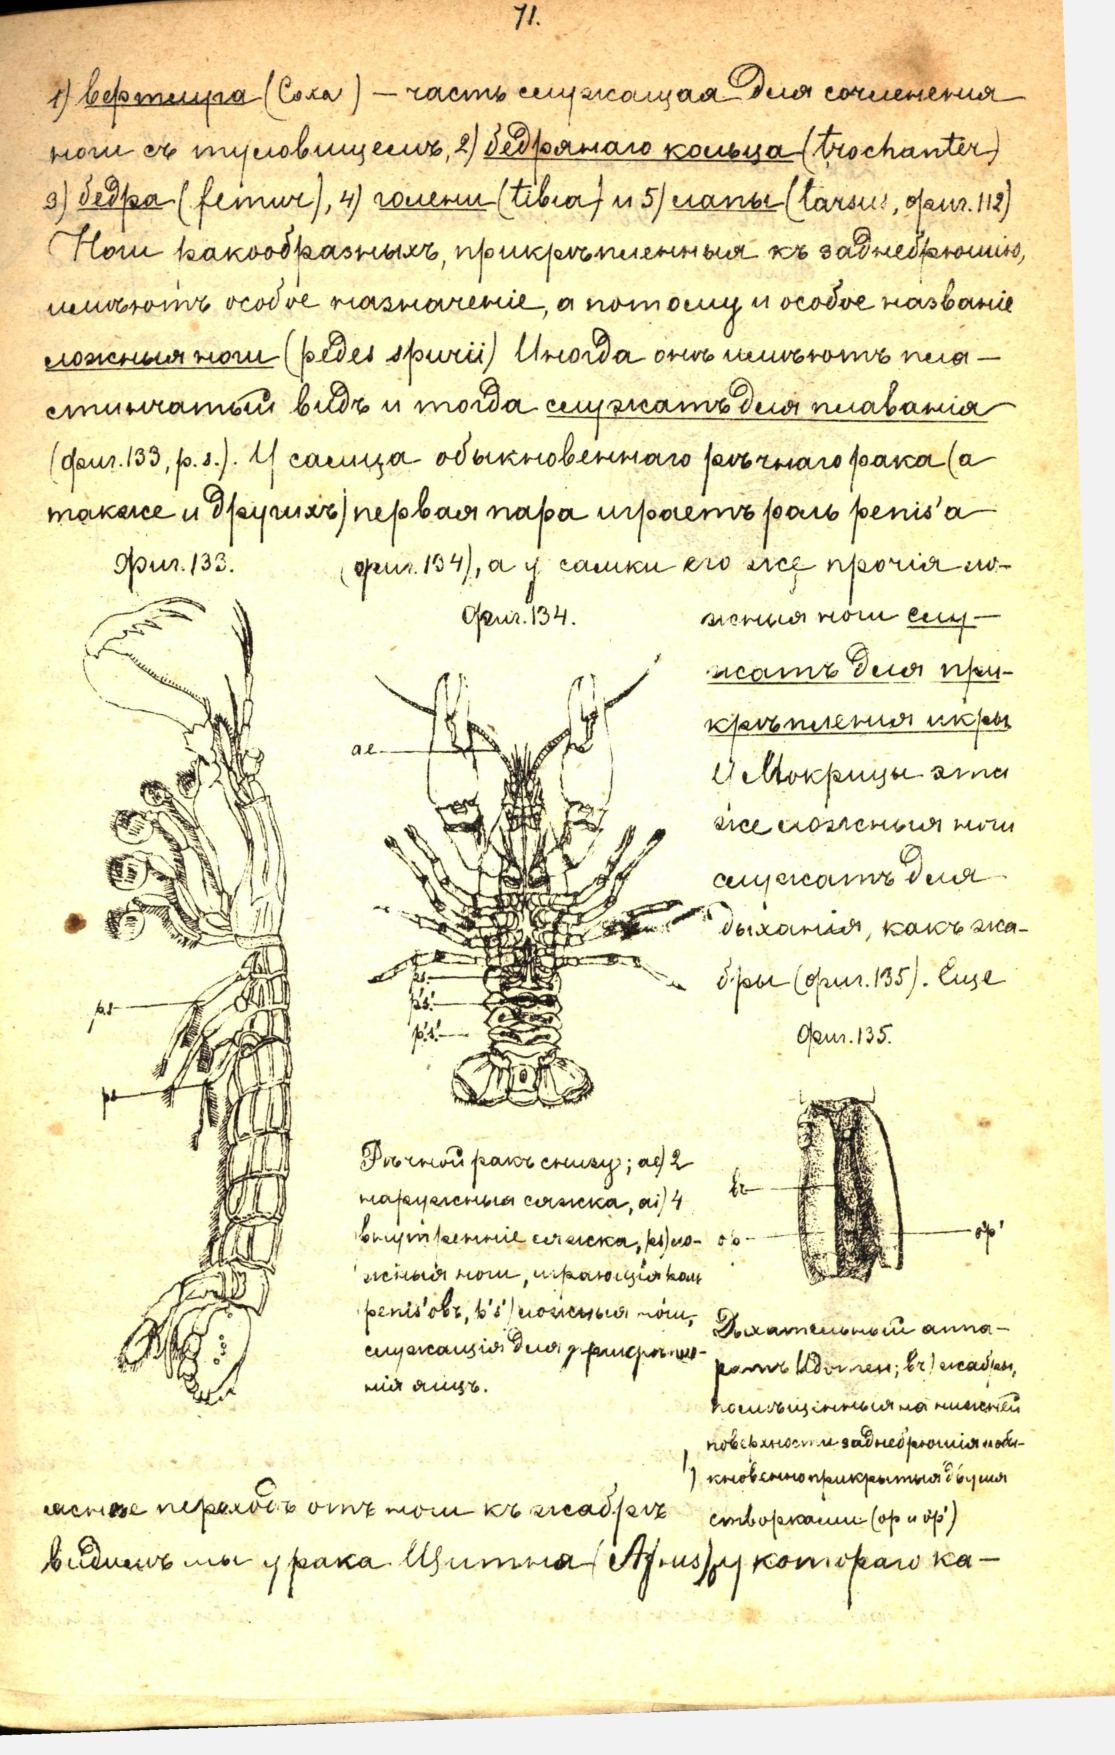 71.
1) вертлуга (Coxa) — часть служащая для сочленения
ноги съ туловищемъ, 2) бедрянаго кольца (trochanter)
3) бедра (femur), 4) голени (tibia) и 5) лапы (tarsus, фиг. 112)
Ноги ракообразныхъ, прикрѣпленныя къ заднебрюшію,
имѣютъ особое назначеніе, а потому и особое названіе
ложныя ноги (pedes spurii) Иногда онѣ имѣютъ пла—
стинчатый видъ и тогда служатъ для плаванія
(фиг. 133, p. s.). У самца обыкновеннаго рѣчнаго рака (а
также и другихъ) первая пара играетъ роль penis'a
Фиг. 133.
(фиг. 134), а у самки его же прочія ло-
Фиг. 134.
жныя ноги слу—
жатъ для при-
крѣпленія икры
У Мокрицы эти
же ложныя ноги
служатъ для
дыханія, какъ жа-
бры (фиг. 135). Еще
ae
ps
p's'
p's'
ps
ps
Рѣчной ракъ снизу; ae) 2
наружныя сяжка, ai) 4
внутренніе сяжка, ps) ло-
жныя ноги, играющія роль
penis'овъ, p's') ложныя ноги,
служащія для прикрѣпле-
нія яицъ.
Фиг. 135.
br
op
op'
Дыхательный аппа—
ратъ Идотеи; br) жабры,
помѣщенныя на нижней
поверхности заднебрюшія и обы-
кновенно прикрытыя двумя
створками (op и op')
яснѣе переходъ отъ ноги къ жабрѣ
видимъ мы у рака Щитня (Apus), у котораго ка—